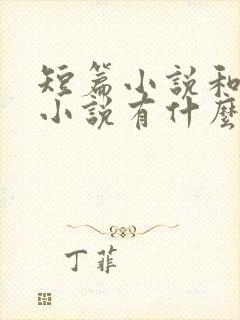 短篇小说和
小说有什麼
丁菲